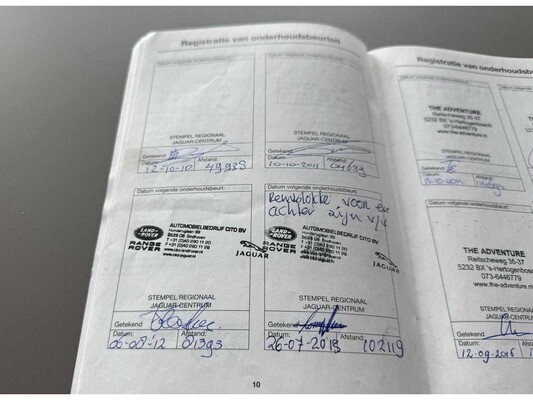 Registratie van onderhoudsbeurten
Datum volgende onderhoudsbeurt:
STEMPEL REGIONAAL
JAGUAR-CENTRUM
Getekend
Datum: Afstand:
12-10-10 49933
Datum volgende onderhoudsbeurt:
STEMPEL REGIONAAL
JAGUAR-CENTRUM
Getekend
Datum: Afstand:
10-10-2011
Datum volgende onderhoudsbeurt:
LAND-ROVER
RANGE ROVER
AUTOMOBIELBEDRIJF CITO BV
Hurksestraat
Eindhoven
JAGUAR
STEMPEL REGIONAAL
JAGUAR-CENTRUM
Getekend
Datum: Afstand:
06-08-12 81393
Datum volgende onderhoudsbeurt:
Remblokke voor en
achter zijn v/v
LAND-ROVER
RANGE ROVER
AUTOMOBIELBEDRIJF CITO BV
Eindhoven
JAGUAR
STEMPEL REGIONAAL
JAGUAR-CENTRUM
Getekend
Datum: Afstand:
26-07-2013 102119
10
Registratie van onderhoudsbe
Datum volgende onderhoudsbeurt:
THE ADVENTURE
Reitscheweg 35-37
5232 BX 's-Hertogenbosch
073-6446779
www.the-adventure.nl
STEMPEL REGIONAAL
JAGUAR-CENTRUM
Getekend
Datum: Afstand:
Datum volgende onderhoudsbeurt:
THE ADVENTURE
Reitscheweg 35-37
5232 BX 's-Hertogenbosch
073-6446779
www.the-adventure.nl
STEMPEL REGIONAAL
JAGUAR-CENTRUM
Getekend
Datum: Afstand:
12-09-2016